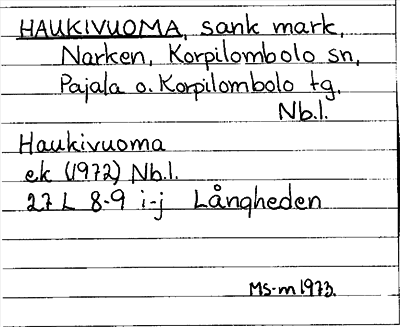 HAUKIVUOMA, sank mark,
Narken, Korpilombolo sn,
Pajala o. Korpilombolo tg,
Nb.l.
Haukivuoma
ek (1972) Nb.l.
27 L 8-9 i-j Långheden
MS-m 1973.